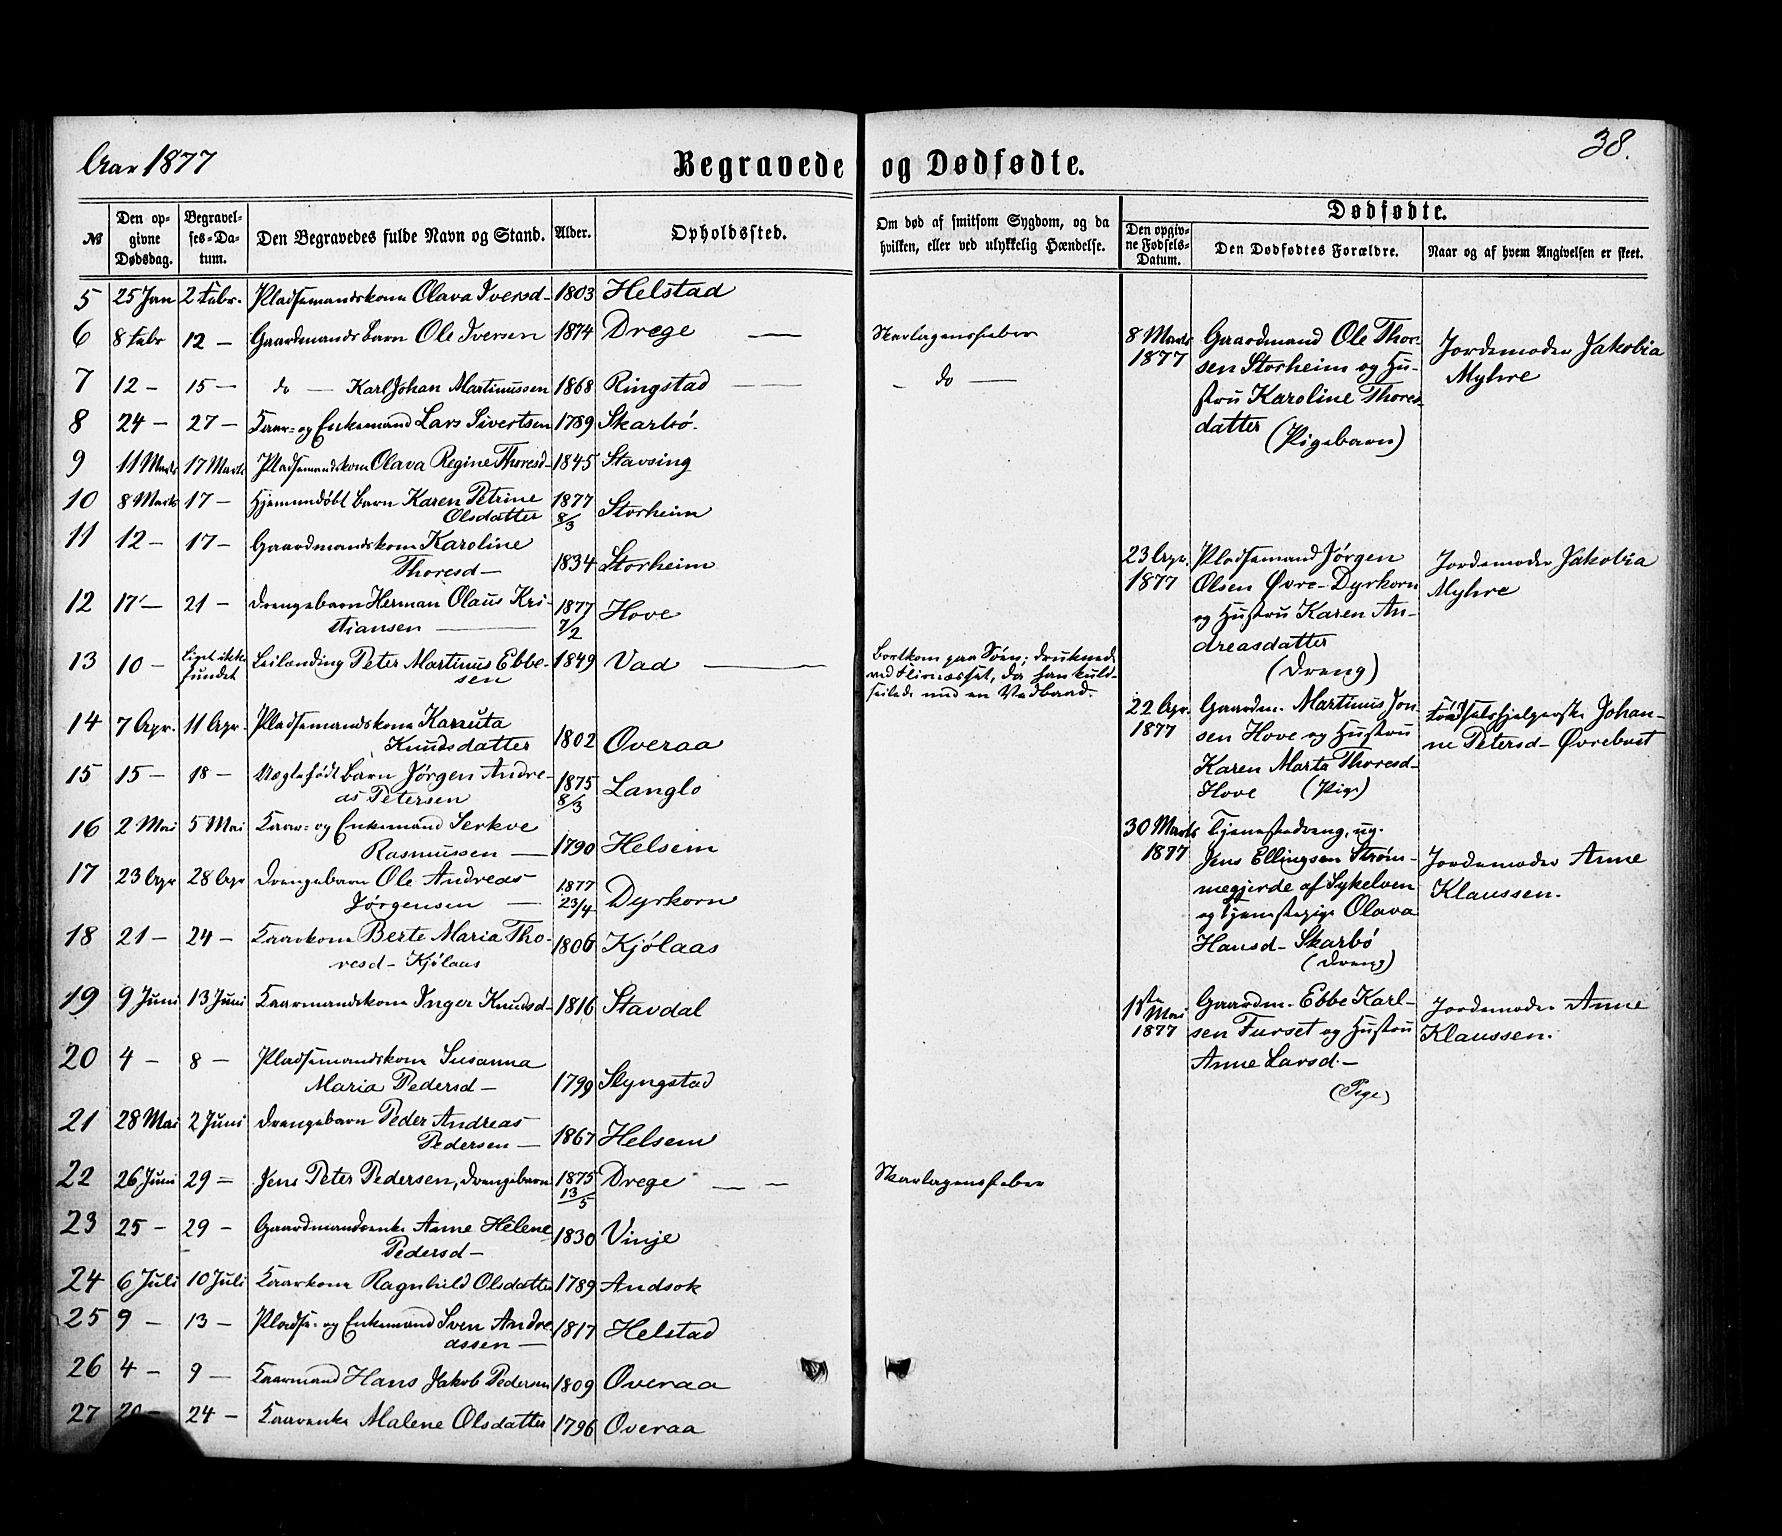 Aar 1877
Begravede og Dødfødte.
38.
№
Den opgivne Dødsdag.
Begravelses-Datum.
Den Begravedes fulde Navn og Stand.
Alder.
Opholdssted.
Om død af smitsom Sygdom, og da hvilken, eller ved ulykkelig Hændelse.
Dødfødte.
Den opgivne Fødsels-Datum.
Den Dødfødtes Forældre.
Naar og af hvem Angivelsen er skeet.
5 25 Jan 2 Febr. Pladsemandskone Olava Iversd- 1803 Helstad
6 8 Febr 12 — Gaardmands Barn Ole Iversen 1874 Drege — Skarlagensfeber
7 12 – 15 — do — Karl Johan Martinussen 1868 Ringstad — – do —
8 24 – 27 – Kaar- og Enkemand Lars Sivertsen 1789 Skarbø.
9 11 Marts 17 Marts Pladsemandskone Olava Regine Thoresd- 1845 Stavsing
10 8 Marts 17 – Hjemmedøbt Barn Karen Petrine
Olsdatter 1877 8/3 Storheim
11 12 – 17 – Gaardmandskone Karoline
Thoresd— 1834 Storheim
12 17 – 21 – Drengebarn Herman Olaus Kri-
stiansen — 1877 7/2 Hove
13 10 – Liget ikke fundet Leilænding Peter Martinus Ebbe-
sen 1849 Vad —
Bortkom paa Søen; druknede
ved Flirnæsset, da han kuld-
seilede med en Vedbaad.
14 7 Apr. 11 Apr. Pladsemandskone
Knudsdatter 1802 Overaa
15 15 – 18 – Uægtefødt Barn Jørgen Andre-
as Petersen 1875 8/3 Langlo
16 2 Mai 5 Mai Kaar- og Enkemand Serkve
Rasmussen — 1790 Helsem
17 23 Apr 28 Apr Drengebarn Ole Andreas
Jørgensen — 1877 23/4 Dyrkorn
18 21 – 24 – Kaarkone Berte Maria Tho-
resd– Kjølaas 1806 Kjølaas
19 9 Juni 13 Juni Kaarmandskone Inger Knudsd– 1816 Stavdal
20 4 – 8 – Pladsemandskone Susanna
Maria Pedersd— 1799 Slyngstad
21 28 Mai 2 Juni Drengebarn Peder Andreas
Pedersen — 1867 Helsem
22 26 Juni 29 = Jens Peter Pedersen, Drengebarn 1875 13/5 Drege — – Skarlagensfeber
23 25 – 29 – Gaardmandsenke Anne Helene
Pedersd— 1830 Vinje
24 6 Juli 10 Juli Kaarkone Ragnhild Olsdatter 1789 Andsok
25 9 – 13 – Pladse- og Enkemand Sven Andre
assen — 1817 Helstad
26 4 – 9 – Kaarmand Hans Jakob Pedersen 1809 Overaa
27 20 – 24 – Kaarenke Malene Olsdatter 1796 Overaa
8 Marts 1877
Gaardmand Ole Thor-
sen Storheim og Hu-
stru Karoline Thores-
datter (Pigebarn)
Jordemoder Jakobia
Myhre
23 Apr. 1877
Pladsemand Jørgen
Olsen Øvre-Dyrkorn
og Hustru Karen An-
dreasdatter
(Dreng)
Jordemoder Jakobia
Myhre
22 Apr. 1877
Gaardm. Martinus Jon-
sen Hove og Hustru
Karen Marta Thoresd–
Hove (Pige)
Fødselshjelperske Johan-
ne Petersd– Øvrebust
30 Marts 1877
Tjenestedreng, ug.
Jens Ellingsen Strøm-
megjerde af Sykelven
og Tjenestepige Olava
Hansd– Skarbø
(Dreng)
Jordemoder Anne
Klaussen.
1ste Mai 1877
Gaardm. Ebbe Karl-
sen Furset og Hustru
Anne Larsd.–
(Pige)
Jordemoder Anne
Klaussen.